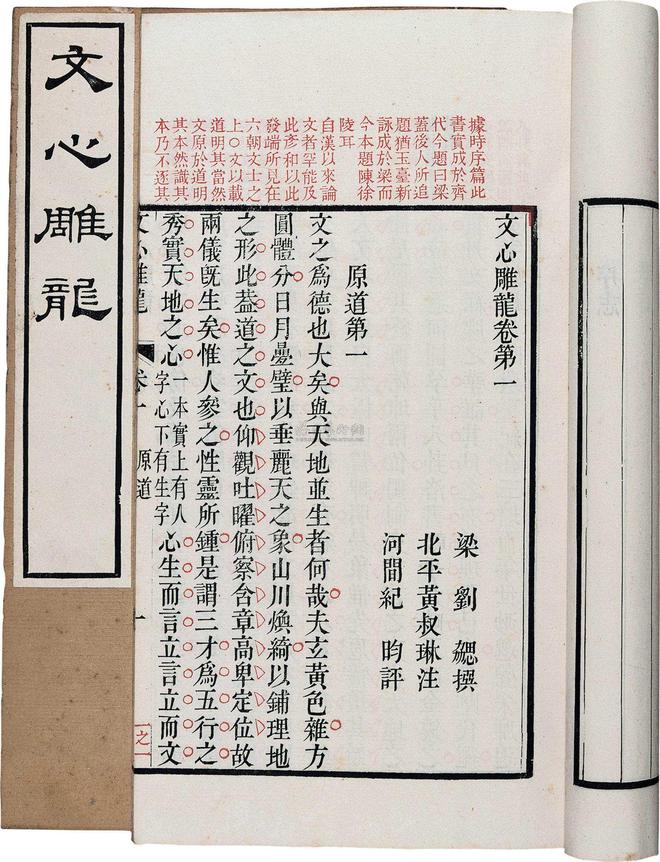 文心雕龍
據時序篇此
書實成於齊
代今題曰梁
蓋後人所追
題猶玉臺新
詠成於梁而
今本題陳徐
陵耳
自漢以來論
文者罕能及
此彥和以此
發端所見在
六朝文士之
上○文以載
道明其當然
文原於道明
其本然識其
本乃不逐其
文心雕龍卷第一
梁 劉 勰撰
北平黃叔琳注
河間紀 昀評
原道第一
文之爲德也大矣與天地並生者何哉夫玄黃色雜方
圓體分日月疊璧以垂麗天之象山川煥綺以鋪理地
之形此葢道之文也仰觀吐曜俯察含章高卑定位故
兩儀旣生矣惟人參之性靈所鍾是謂三才爲五行之
秀實天地之心一本實上有人字心下有生字心生而言立言立而文
文心雕龍 卷一 原道 一
之一